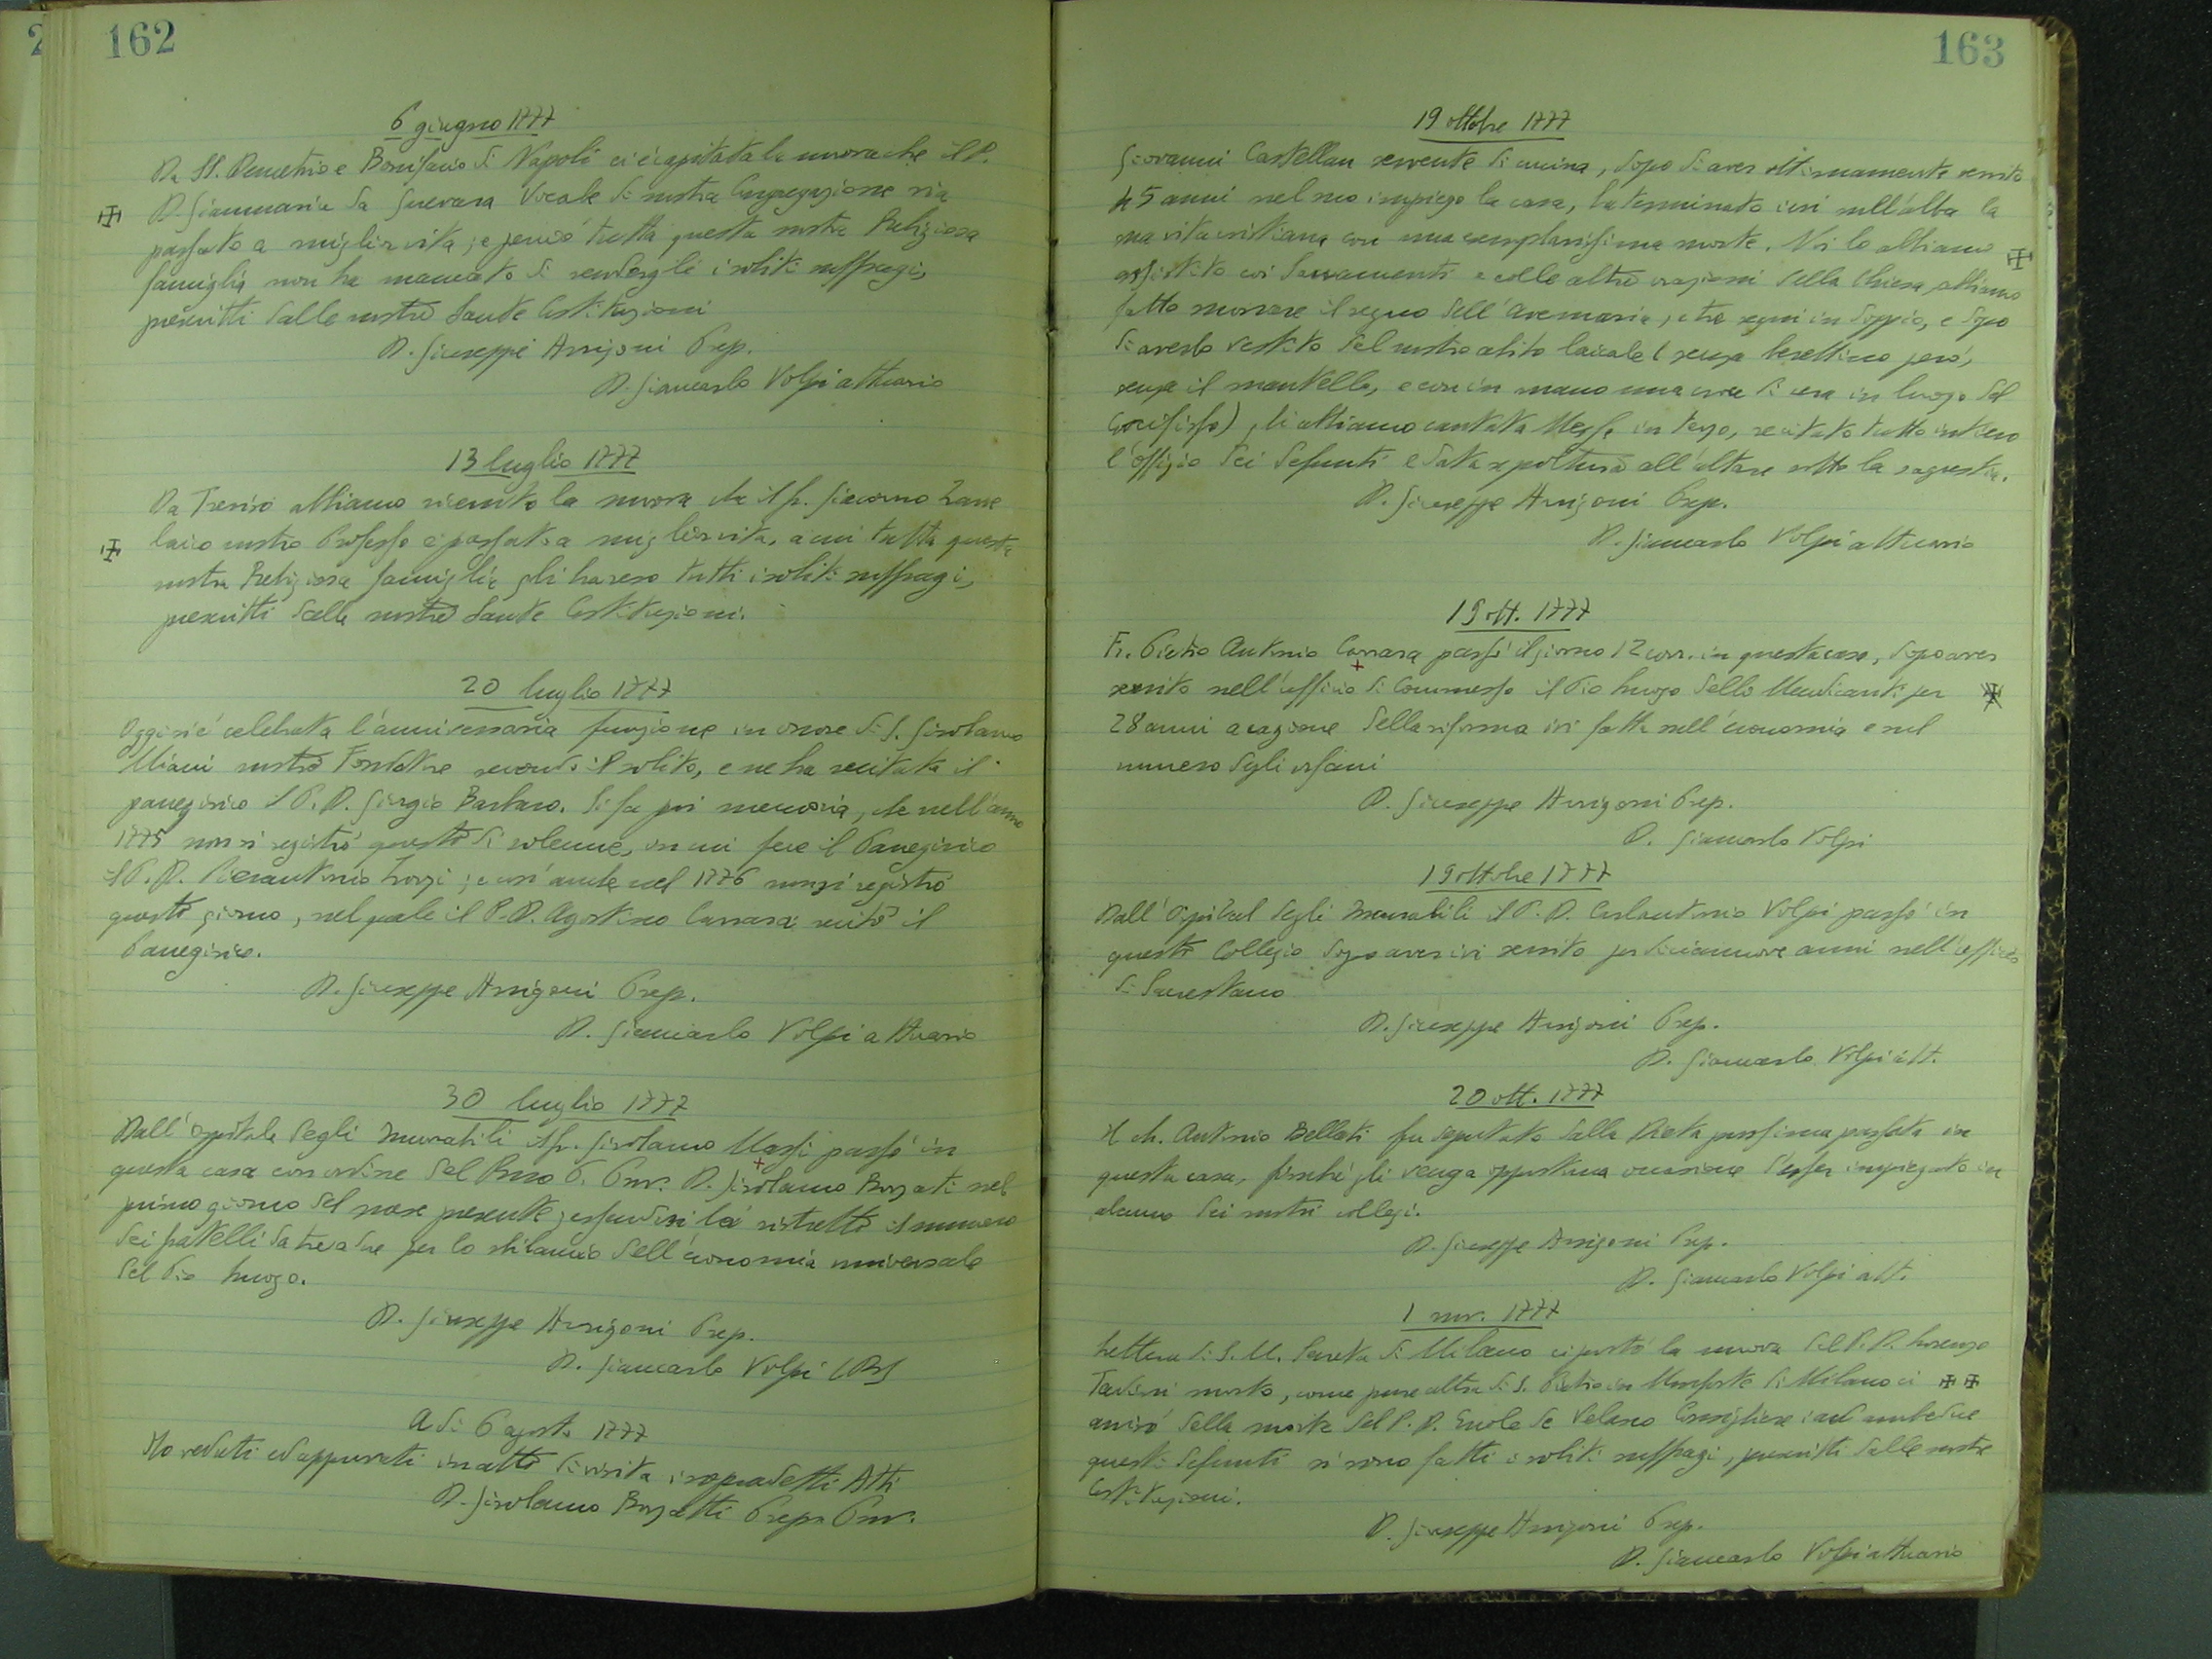 162
6 giugno 1777
Da SS. Demetrio e Bonifacio di Napoli ci è capitata la nuova che il P.
D. Giammaria da Guevara Vocale di nostra Congregazione sia
passato a miglior vita; e perciò tutta questa nostra Religiosa
famiglia non ha mancato di rendergli i soliti suffragi,
prescritti dalle nostre Sante Costituzioni
D. Giuseppe Arrigoni Prep.
D. Giancarlo Volpi attuario
13 luglio 1777
Da Treviso abbiamo ricevuto la nuova che il fr. Giacomo Zane
laico nostro Professo è passato a miglior vita, a cui tutta questa
nostra Religiosa famiglia gli ha reso tutti i soliti suffragi,
prescritti dalle nostre Sante Costituzioni.
20 luglio 1777
Oggi si è celebrata l'anniversaria funzione in onore di S. Girolamo
Miani nostro Fondatore secondo il solito, e ne ha recitato il
panegirico il P. D. Giorgio Barbaro. Si fa poi memoria, che nell'anno
1775 non si registrò questo dì solenne, in cui fece il Panegirico
il P. D. Pierantonio Zorzi; e così anche nel 1776 non si registrò
questo giorno, nel quale il P. D. Agostino Carrara recitò il
Panegirico.
D. Giuseppe Arrigoni Prep.
D. Giancarlo Volpi attuario
30 luglio 1777
Dall'ospitale degli Incurabili il fr. Girolamo Massi passò in
questa casa con ordine del P. Prov. D. Girolamo Bonzati nel
primo giorno del mese presente, essendosi là ristretto il numero
dei fratelli da tre a due per lo sbilancio dell'economia universale
del Pio luogo.
D. Giuseppe Arrigoni Prep.
D. Giancarlo Volpi
A dì 6 agosto 1777
Ho veduti ed approvati in atto di visita i sopradetti Atti
D. Girolamo Bonzatti Prep. Prov.
163
19 ottobre 1777
Giovanni Castellan servente di cucina, dopo di aver ottimamente servito
45 anni nel suo impiego la casa, ha terminato ieri sull'alba la
sua vita cristiana con una esemplarissima morte. Noi lo abbiamo
assistito coi Sacramenti e colle altre orazioni della Chiesa, abbiamo
fatto suonare il segno dell'Avemaria, e tre segni in doppio, e dopo
di averlo vestito del nostro abito laicale (senza berettino però,
senza il mantello, e con in mano una croce di cera in luogo del
Crocifisso), li abbiamo cantata Messa in terzo, recitato tutto intiero
l'offizio dei defunti e data sepoltura all'altare sotto la sagrestia.
D. Giuseppe Arrigoni Prep.
D. Giancarlo Volpi attuario
19 ott. 1777
Fr. Pietro Antonio Carrara passò il giorno 12 corr. in questa casa, dopo aver
servito nell'officio di Commesso il Pio luogo dello Mendicanti per
28 anni a cagione della riforma ivi fatta nell'economia e nel
numero degli orfani
D. Giuseppe Arrigoni Prep.
D. Giancarlo Volpi
19 ottobre 1777
Dall'Ospital degli Incurabili il P. D. Carlantonio Volpi passò in
questo Collegio dopo aver ivi servito per diciannove anni nell'officio
di Sacrestano
D. Giuseppe Arrigoni Prep.
D. Giancarlo Volpi att.
20 ott. 1777
Il ch. Antonio Bellati fu deputato dalla Dieta prossima passata in
questa casa, finchè gli venga opportuna occasione d'esser impiegato in
alcuno dei nostri collegi.
D. Giuseppe Arrigoni Prep.
D. Giancarlo Volpi att.
1 nov. 1777
Lettera di S. M. Segreta di Milano ci portò la nuova del P. D. Lorenzo
Taddisi morto, come pure altra di S. Pietro in Monforte di Milano ci
avvisò della morte del P. D. Ercole de Velasco Consigliere; ad ambedue
questi defunti si sono fatti i soliti suffragi, prescritti dalle nostre
Costituzioni.
D. Giuseppe Arrigoni Prep.
D. Giancarlo Volpi attuario